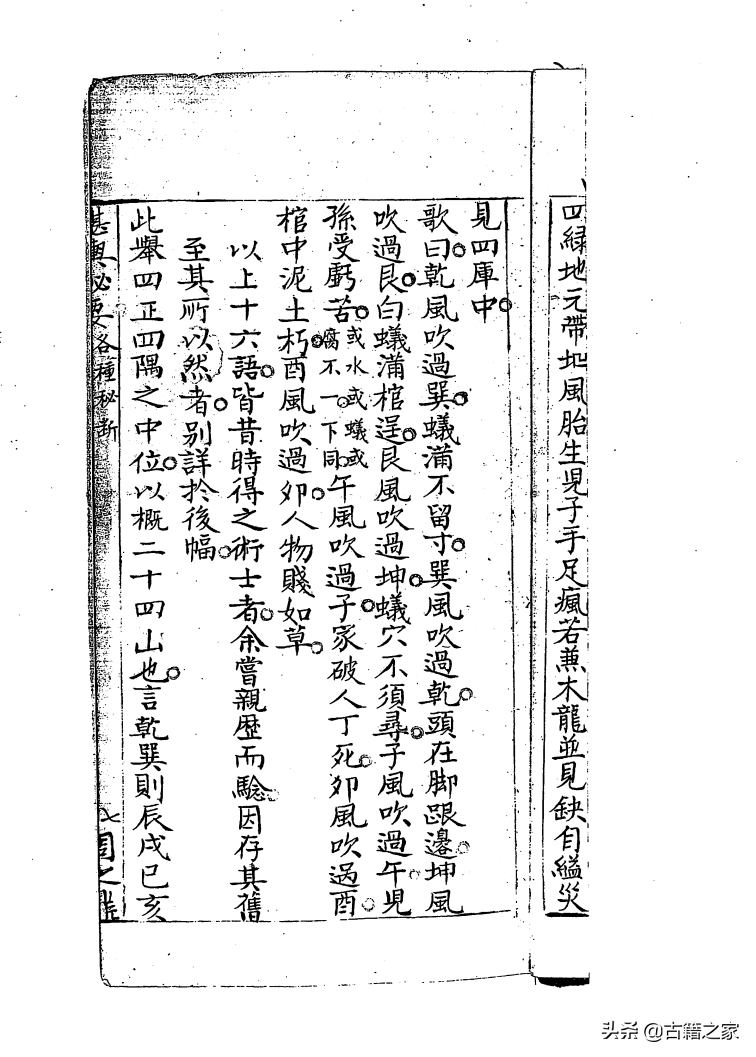 四綠地元帶地風胎生児子手足瘋若兼木龍並見缺自縊災
見四庫中。
歌曰。乾風吹過巽。蟻滿不留寸。巽風吹過乾。頭在脚跟邊。坤風
吹過艮。白蟻滿棺逞。艮風吹過坤。蟻穴不須尋。子風吹過午。児
孫受虧苦。或水或蟻或腐不一。下同。午風吹過子。家破人丁死。卯風吹過酉。
棺中泥土朽。酉風吹過卯。人物賤如草。
以上十六語。皆昔時得之術士者。余嘗親歷而驗。因存其舊
至其所以然者。別詳於後幅。
此舉四正四隅之中位。以概二十四山也。言乾巽則辰戌巳亥
堪輿秘要各種秘斷